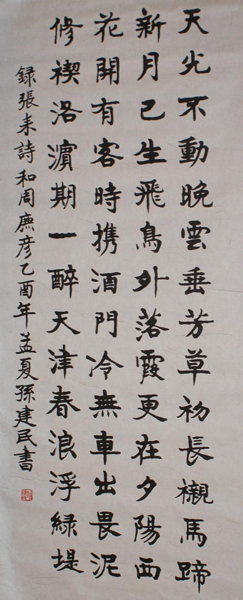 天光不動晚雲垂芳草初長襯馬蹄
新月已生飛鳥外落霞更在夕陽西
花開有客時携酒門冷無車出畏泥
修禊洛濵期一醉天津春浪浮綠堤
録張耒詩和周廉彦乙酉年孟夏孫建民書